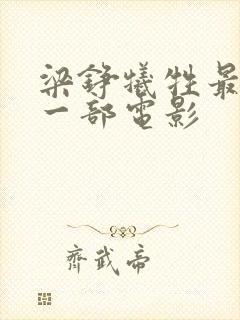 梁錚犧牲最
一部電影
齊武帝